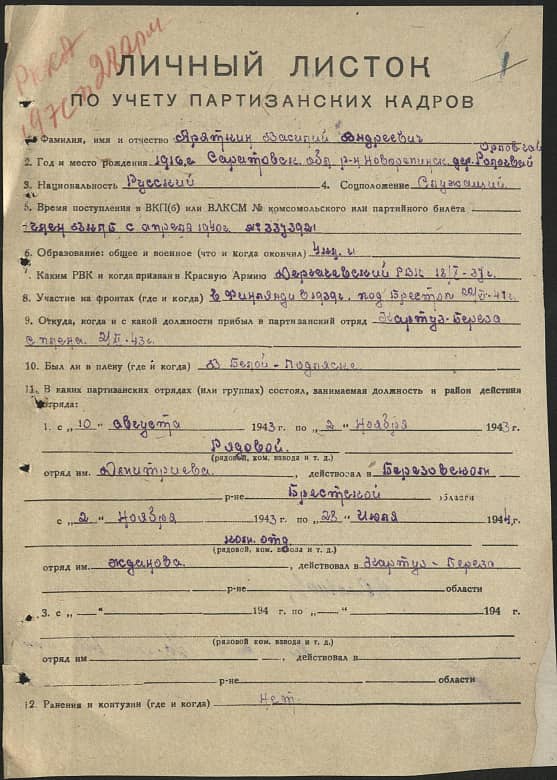 РККА
1
ЛИЧНЫЙ ЛИСТОК
ПО УЧЕТУ ПАРТИЗАНСКИХ КАДРОВ
1. Фамилия, имя и отчество Яряткин Василий Андреевич
2. Год и место рождения 1916 г. Саратовск. обл. р-н Новорепинск. дер.
3. Национальность Русский 4. Соцположение Служащий
5. Время поступления в ВКП(б) или ВЛКСМ № комсомольского или партийного билета
член с апреля 1940 г. №
6. Образование: общее и военное (что и когда окончил)
7. Каким РВК и когда призван в Красную Армию Дергачевский РВК
8. Участие на фронтах (где и когда) в Финлянди 1939 г. под Брестом
9. Откуда, когда и с какой должности прибыл в партизанский отряд Картуз-Береза
с плена
10. Был ли в плену (где и когда) В Белой-Подляске
11. В каких партизанских отрядах (или группах) состоял, занимаемая должность и район действия
отряда:
1. с „10“ августа 1943 г. по „2“ Ноября 1943 г.
Рядовой.
(рядовой, ком. взвода и т. д.)
отряд им. Дмитриева, действовал в Березовском
р-не Брестской области
с „2“ Ноября 1943 г. по „28“ Июля 1944 г.
ком. отд.
(рядовой, ком. взвода и т. д.)
отряд им. Жданова, действовал в Картуз-Береза
р-не области
3. с „ “ 194 г. по „ “ 194 г.
(рядовой ком. взвода и т. д.)
отряд им , действовал в
р-не области
12. Ранения и контузии (где и когда) Нет.